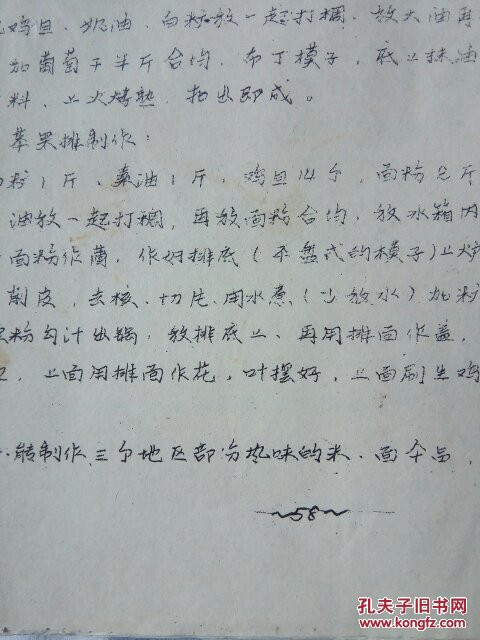 鸡旦、奶油、白粉放一起打稠、放大油再
加葡萄干半斤合均、布丁模子、底上抹油
料、上火烤熟、扣出即成。
苹果排制作：
粉1斤、素油1斤、鸡旦14个、面粉2斤
油放一起打稠、再放面粉合均、放冰箱内
面粉作菌、作好排底(平盘式的模子)上炉
削皮、去核、切片、用水煮(少放水)加粉
粉勾汁出锅、放排底上、再用排面作盖、
上面用排面作花、叶摆好、上面刷生鸡
能制作三个地区部分风味的米、面个品、
~58~
孔夫子旧书网
www.kongfz.com